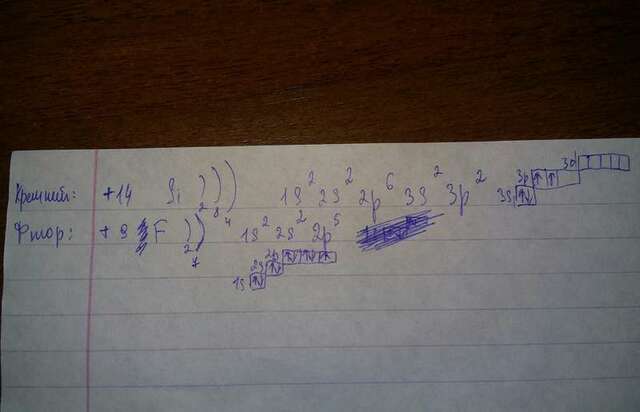 Кремний: +14 Si ) ) ) 2 8 4 1s² 2s² 2p⁶ 3s² 3p² 3s ↑↓ 3p ↑ ↑ 3d
Фтор: +9 F ) ) 2 7 1s² 2s² 2p⁵
1s ↑↓ 2s ↑↓ 2p ↑↓ ↑↓ ↑